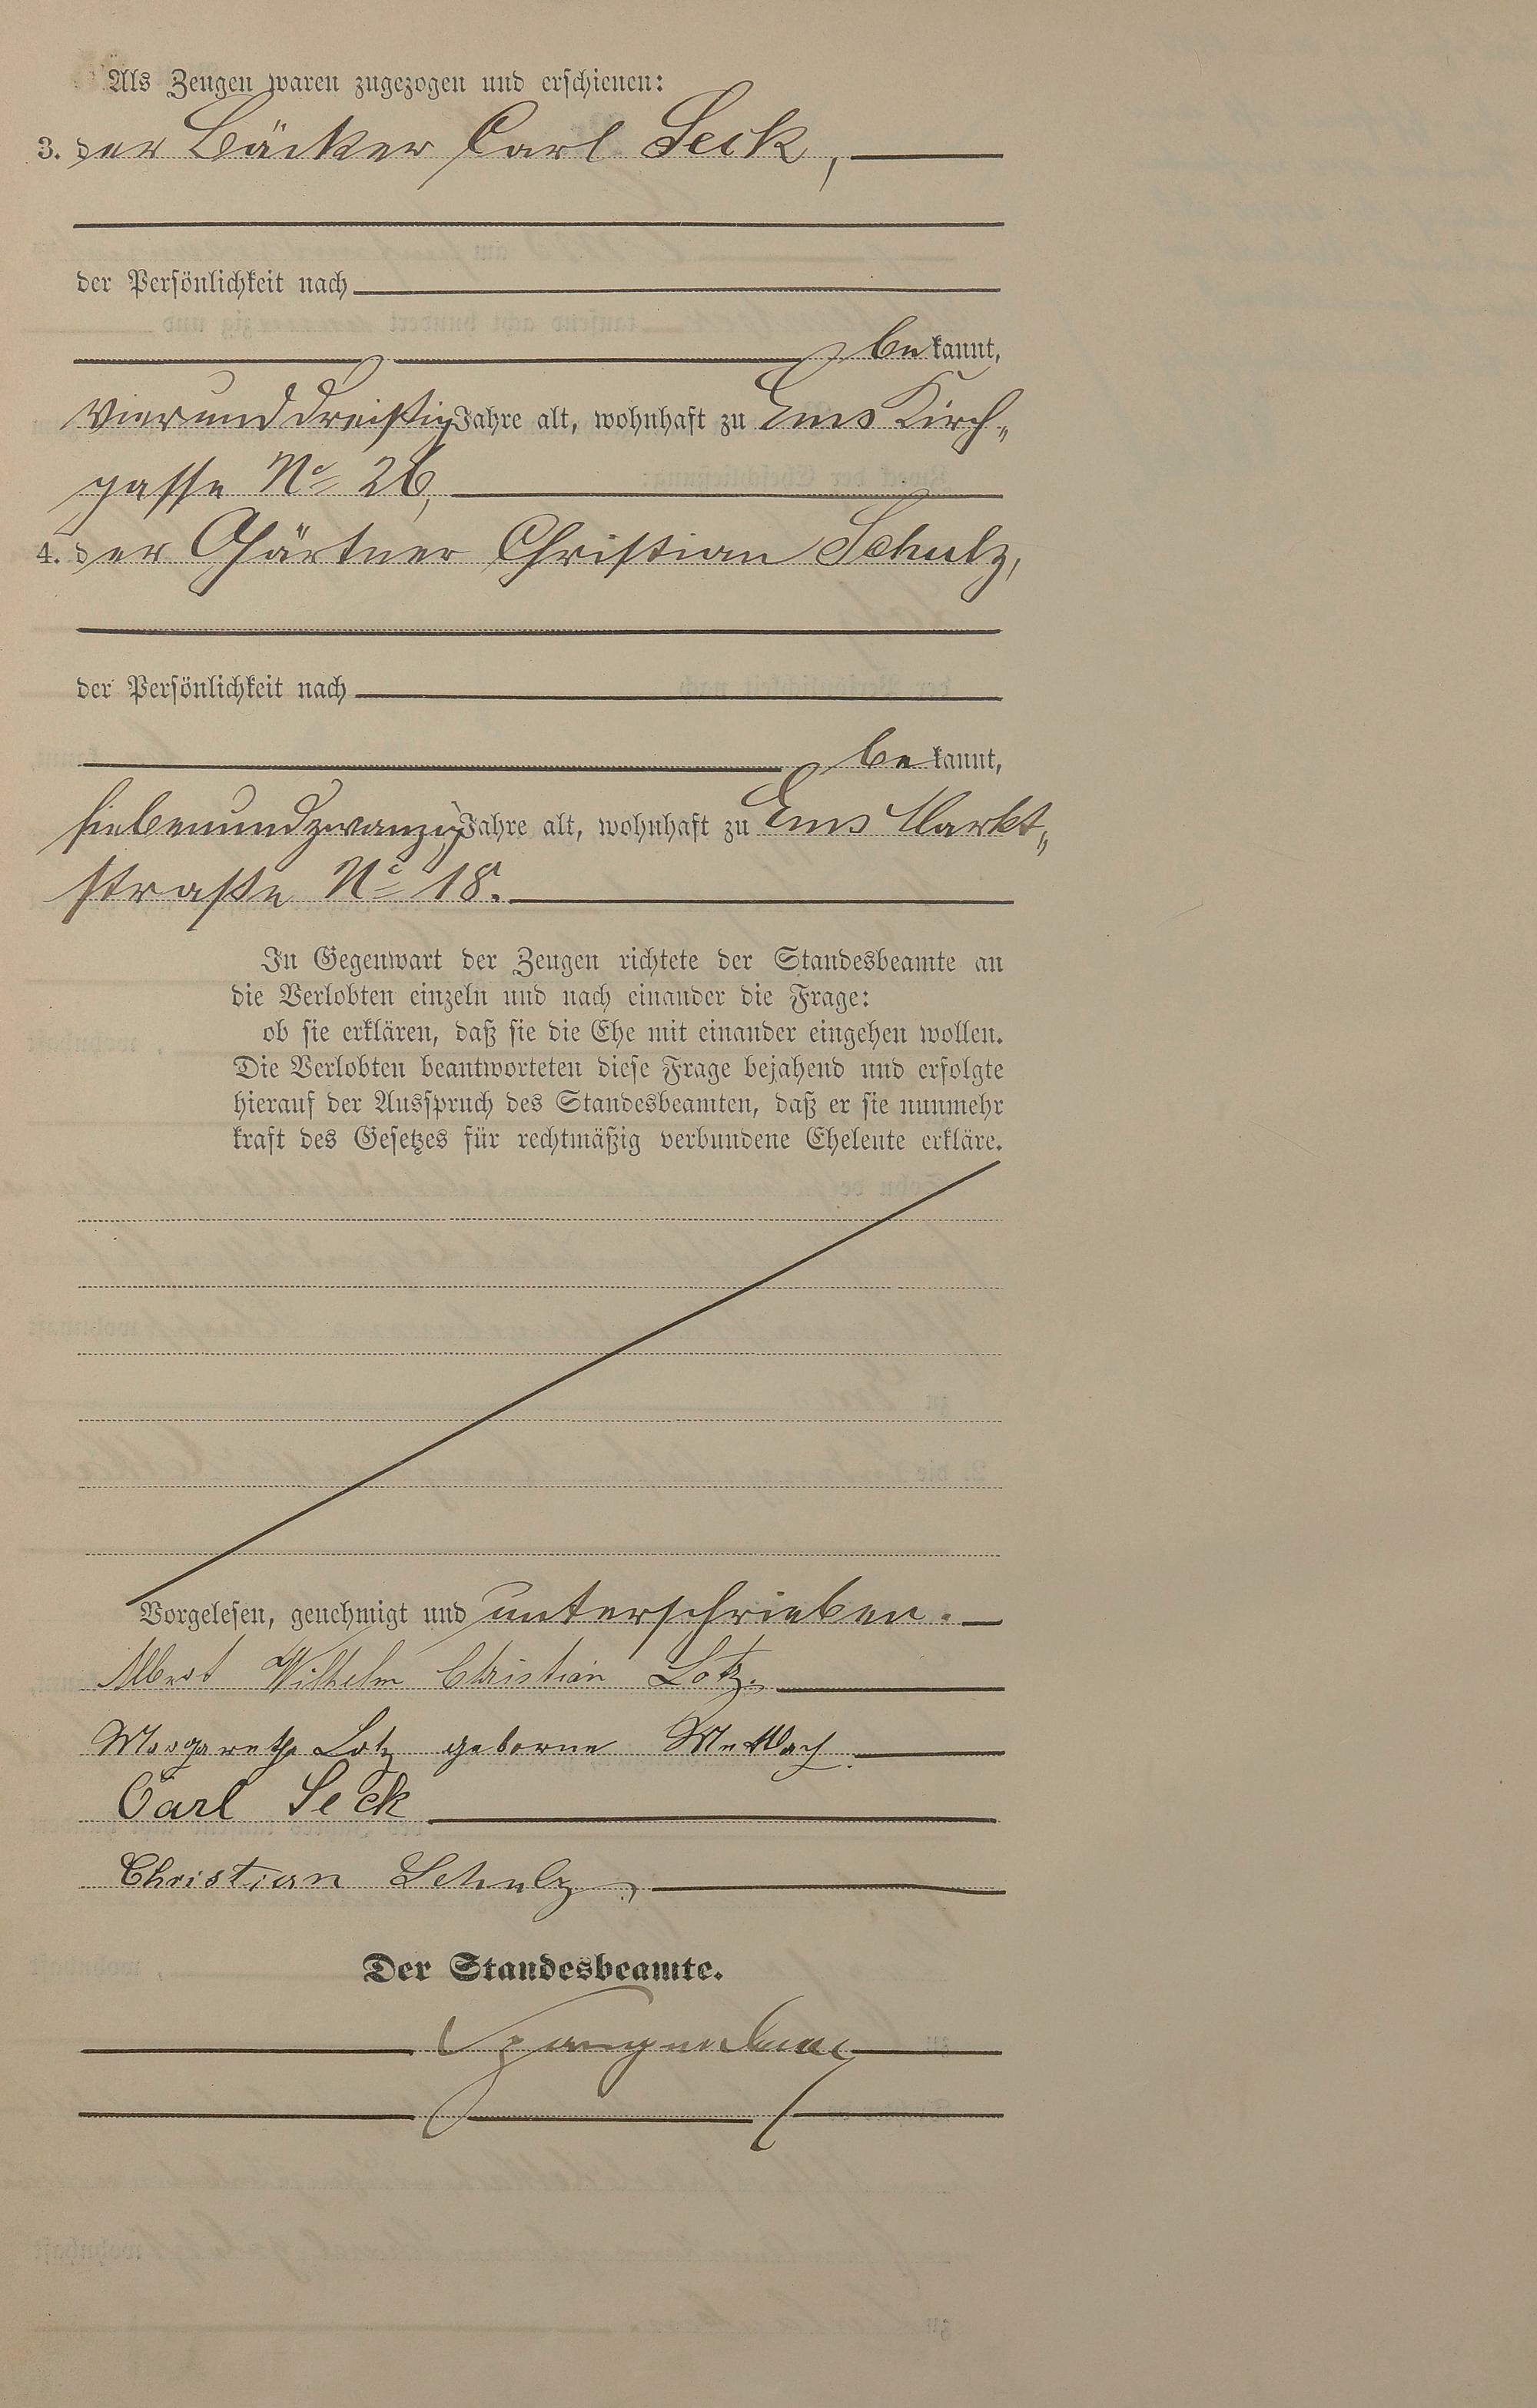 Als Zeugen waren zugezogen und erschienen:
3. der Bäcker Carl Seck,
der Persönlichkeit nach
bekannt,
vierunddreißig Jahre alt, wohnhaft zu Ems Kirch-
gasse No 26,
4. der Gärtner Christian Schulz,
der Persönlichkeit nach
bekannt,
siebenundzwanzig Jahre alt, wohnhaft zu Ems Markt-
straße No 18.
In Gegenwart der Zeugen richtete der Standesbeamte an
die Verlobten einzeln und nach einander die Frage:
ob sie erklären, daß sie die Ehe mit einander eingehen wollen.
Die Verlobten beantworteten diese Frage bejahend und erfolgte
hierauf der Ausspruch des Standesbeamten, daß er sie nunmehr
kraft des Gesetzes für rechtmäßig verbundene Eheleute erkläre.
Vorgelesen, genehmigt und unterschrieben.
Albert Wilhelm Christian Lotz.
Margarethe Lotz geborne Mettlach.
Carl Seck
Christian Schulz
Der Standesbeamte.